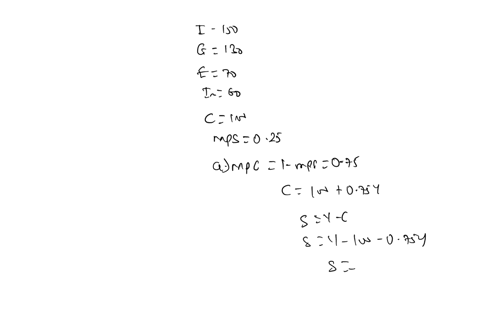 I - 150
G = 130
E = 70
Im = 60
C = 100
mps = 0.25
a) mpc = 1 - mps = 0.75
C = 100 + 0.75Y
S = Y - C
S = Y - 100 - 0.75Y
S =